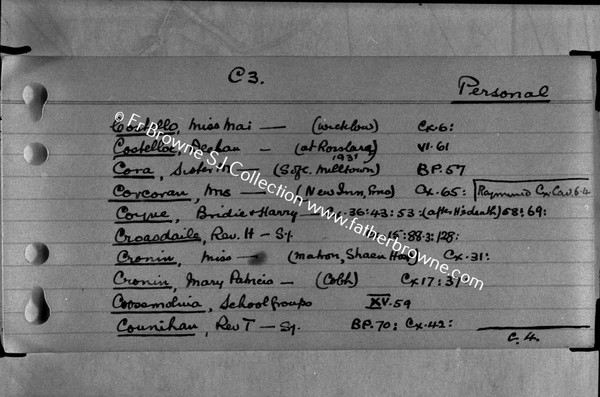 C3.
Personal
Costello, Miss Mai — (Wicklow) Cx.6:
Costelloe, Declan — (at Rosslare) VI.61
1931
Cora, Sister M — (S of C. Milltown) BP.57
Corcoran, Mrs — (New Inn, Ennis) Cx.65: Raymund Cx Cav. 6.4
Coyne, Bridie & Harry — Cx.36:43:53:(after H's death) 58:69:
Croasdaile, Rev. H — S.J. 15:88.3:128:
Cronin, Miss — (Mahon, Shaen Hosp) Cx.31:
Cronin, Mary Patricia — (Cobh) Cx17:37:
Coosemaluia, School Groups XV.59
Counihan, Rev T — S.J. BP.70: Cx.42:
C.4.
© Fr Browne S.J. Collection www.fatherbrowne.com